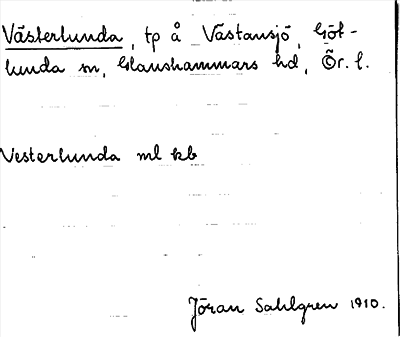 Västerlunda, tp å Västansjö, Göt-
lunda sn, Glanshammars hd, Ör. l.
Vesterlunda ml kb
Jöran Sahlgren 1910.